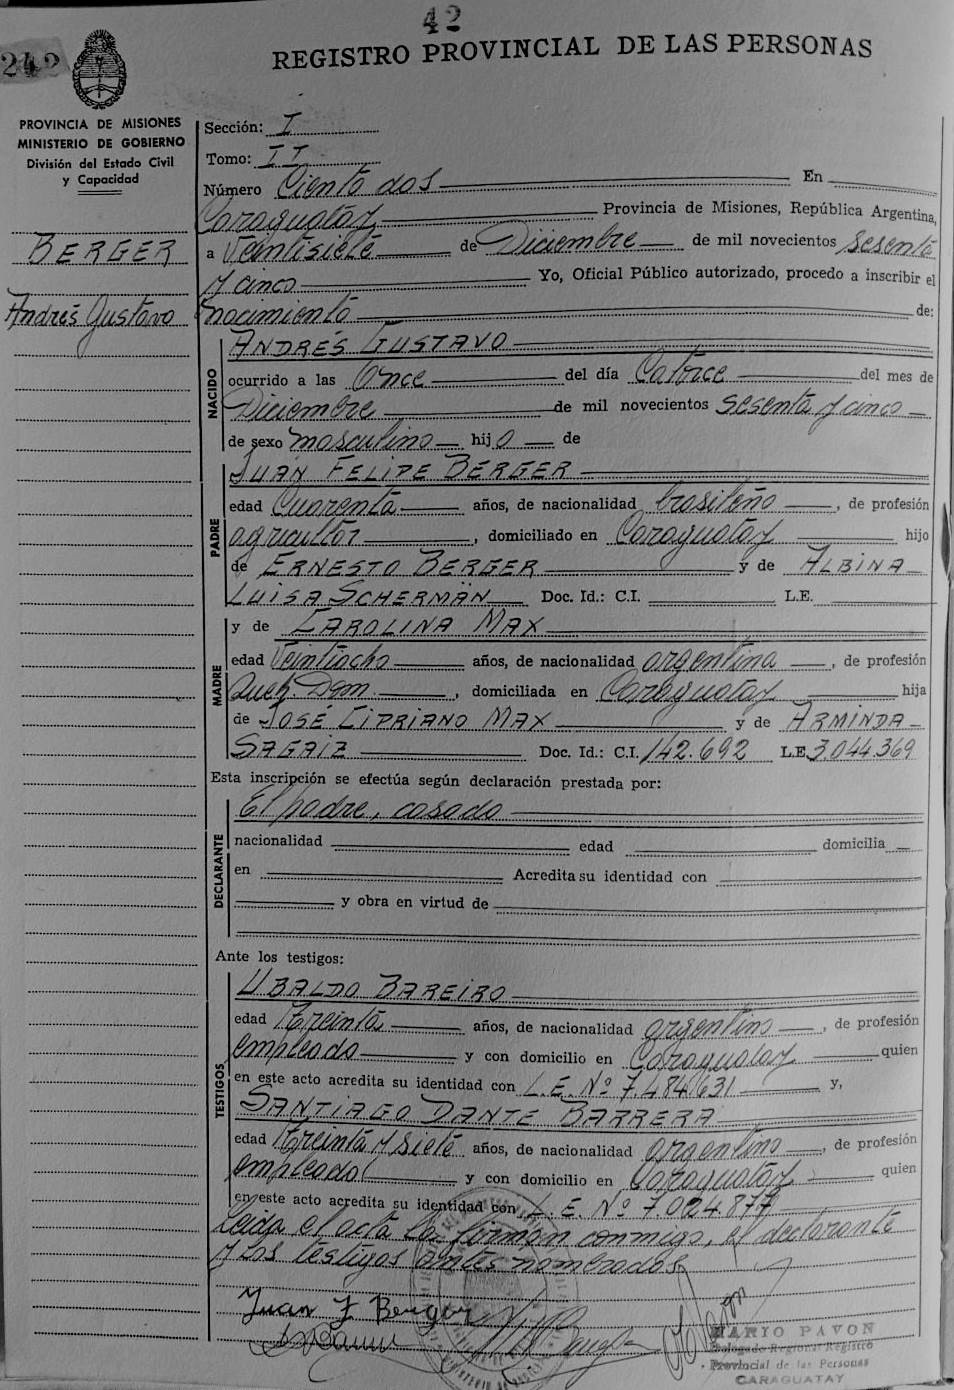 42
242
REGISTRO PROVINCIAL DE LAS PERSONAS
PROVINCIA DE MISIONES
MINISTERIO DE GOBIERNO
División del Estado Civil
y Capacidad
BERGER
Andrés Gustavo
Sección: I
Tomo: II
Número Ciento dos En
Caraguatay Provincia de Misiones, República Argentina,
a Veintisiete de Diciembre de mil novecientos sesenta
y cinco Yo, Oficial Público autorizado, procedo a inscribir el
nacimiento de:
NACIDO
ANDRÉS GUSTAVO
ocurrido a las Once del día Catorce del mes de
Diciembre de mil novecientos sesenta y cinco
de sexo masculino hijo de
PADRE
JUAN FELIPE BERGER
edad Cuarenta años, de nacionalidad brasileño, de profesión
agricultor, domiciliado en Caraguatay hijo
de ERNESTO BERGER y de ALBINA
LUISA SCHERMAN Doc. Id.: C.I. L.E.
MADRE
y de CAROLINA MAX
edad Veintiocho años, de nacionalidad argentina, de profesión
Queh. Dom., domiciliada en Caraguatay hija
de JOSÉ CIPRIANO MAX y de ARMINDA
SAGAIZ Doc. Id.: C.I. 142.692 L.E. 3.044.369
Esta inscripción se efectúa según declaración prestada por:
DECLARANTE
El padre, casado
nacionalidad edad domicilia
en Acredita su identidad con
y obra en virtud de
Ante los testigos:
TESTIGOS
UBALDO BAREIRO
edad treinta años, de nacionalidad argentino, de profesión
empleado y con domicilio en Caraguatay quien
en este acto acredita su identidad con L.E. Nº 7.484.631 y,
SANTIAGO DANTE BARRERA
edad treinta y siete años, de nacionalidad argentino, de profesión
empleado y con domicilio en Caraguatay quien
en este acto acredita su identidad con L.E. Nº 7.024.877
Leida el acta la firman conmigo, el declarante
y los testigos antes nombrados
Juan F Berger
MARIO PAVON
Delegado Regional Registro
Provincial de las Personas
CARAGUATAY